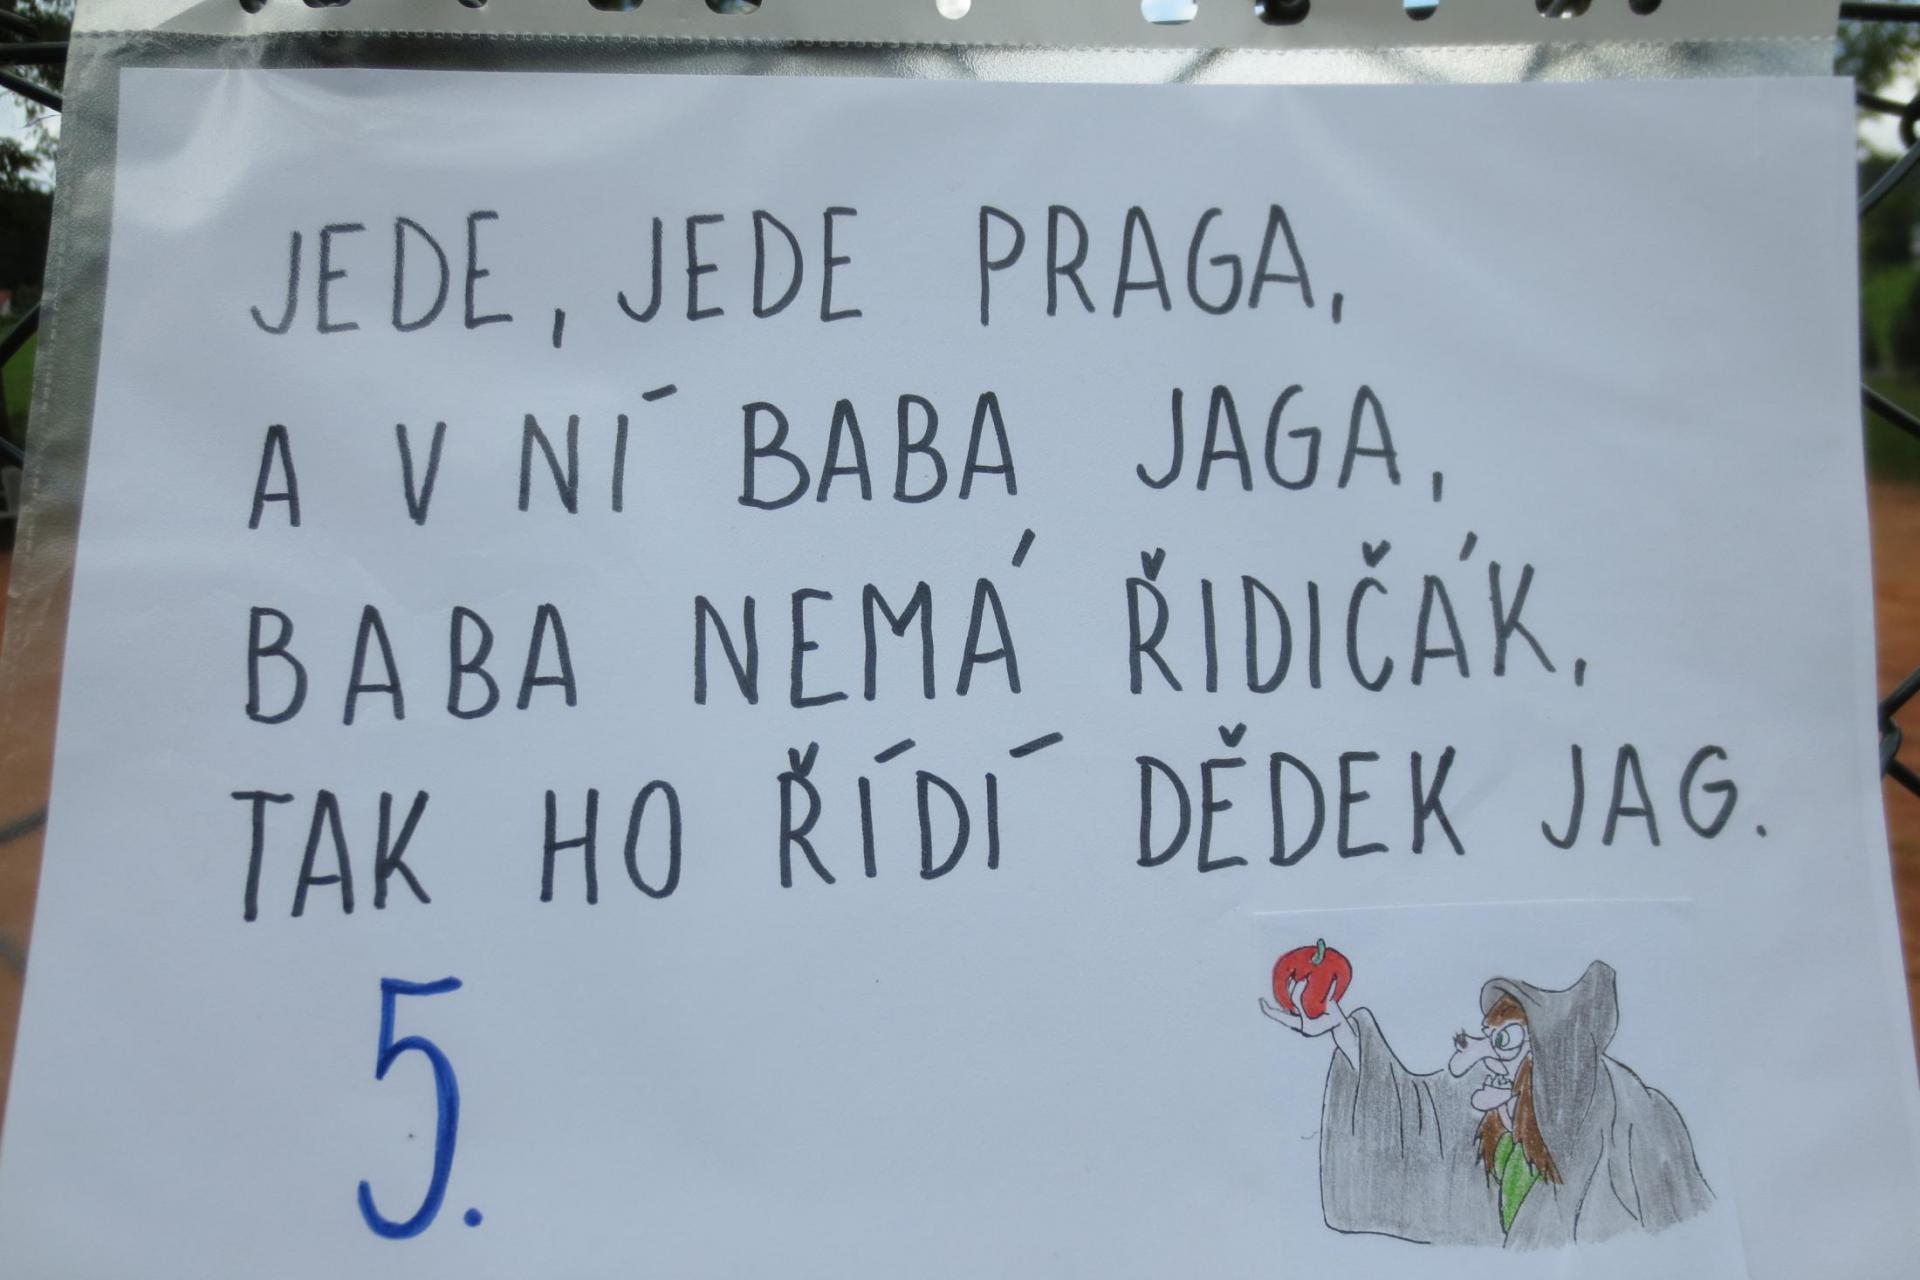 JEDE, JEDE PRAGA,
A V NÍ BABA JAGA,
BABA NEMÁ ŘIDIČÁK,
TAK HO ŘÍDÍ DĚDEK JAG.
5.